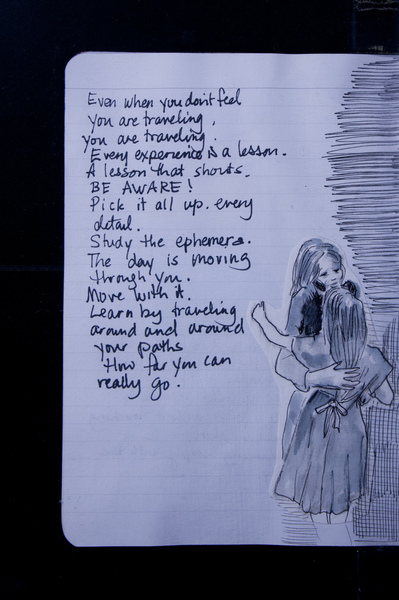 Even when you don't feel
you are traveling,
you are traveling.
Every experience is a lesson.
A lesson that shouts.
BE AWARE!
Pick it all up. every
detail.
Study the ephemera.
The day is moving
through you.
Move with it.
Learn by traveling
around and around
your paths
How far you can
really go.